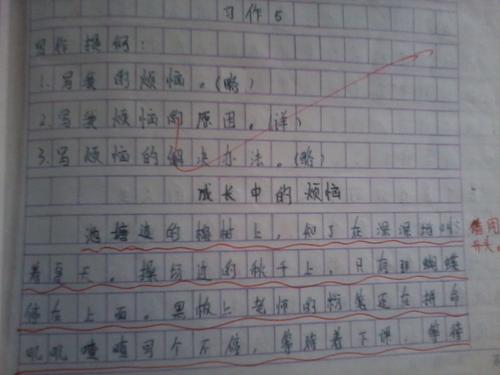 习作5
写作提纲:
1.写我的烦恼。(略)
2.写我烦恼的原因。(详)
3.写烦恼的解决办法。(略)
成长中的烦恼
池塘边的榕树上,知了在深深的叫
着夏天。操场边的秋千上,只有蝴蝶
停在上面。黑板上老师的粉笔还在拼命
叽叽喳喳写个不停,等待着下课,等待
借用
开头。